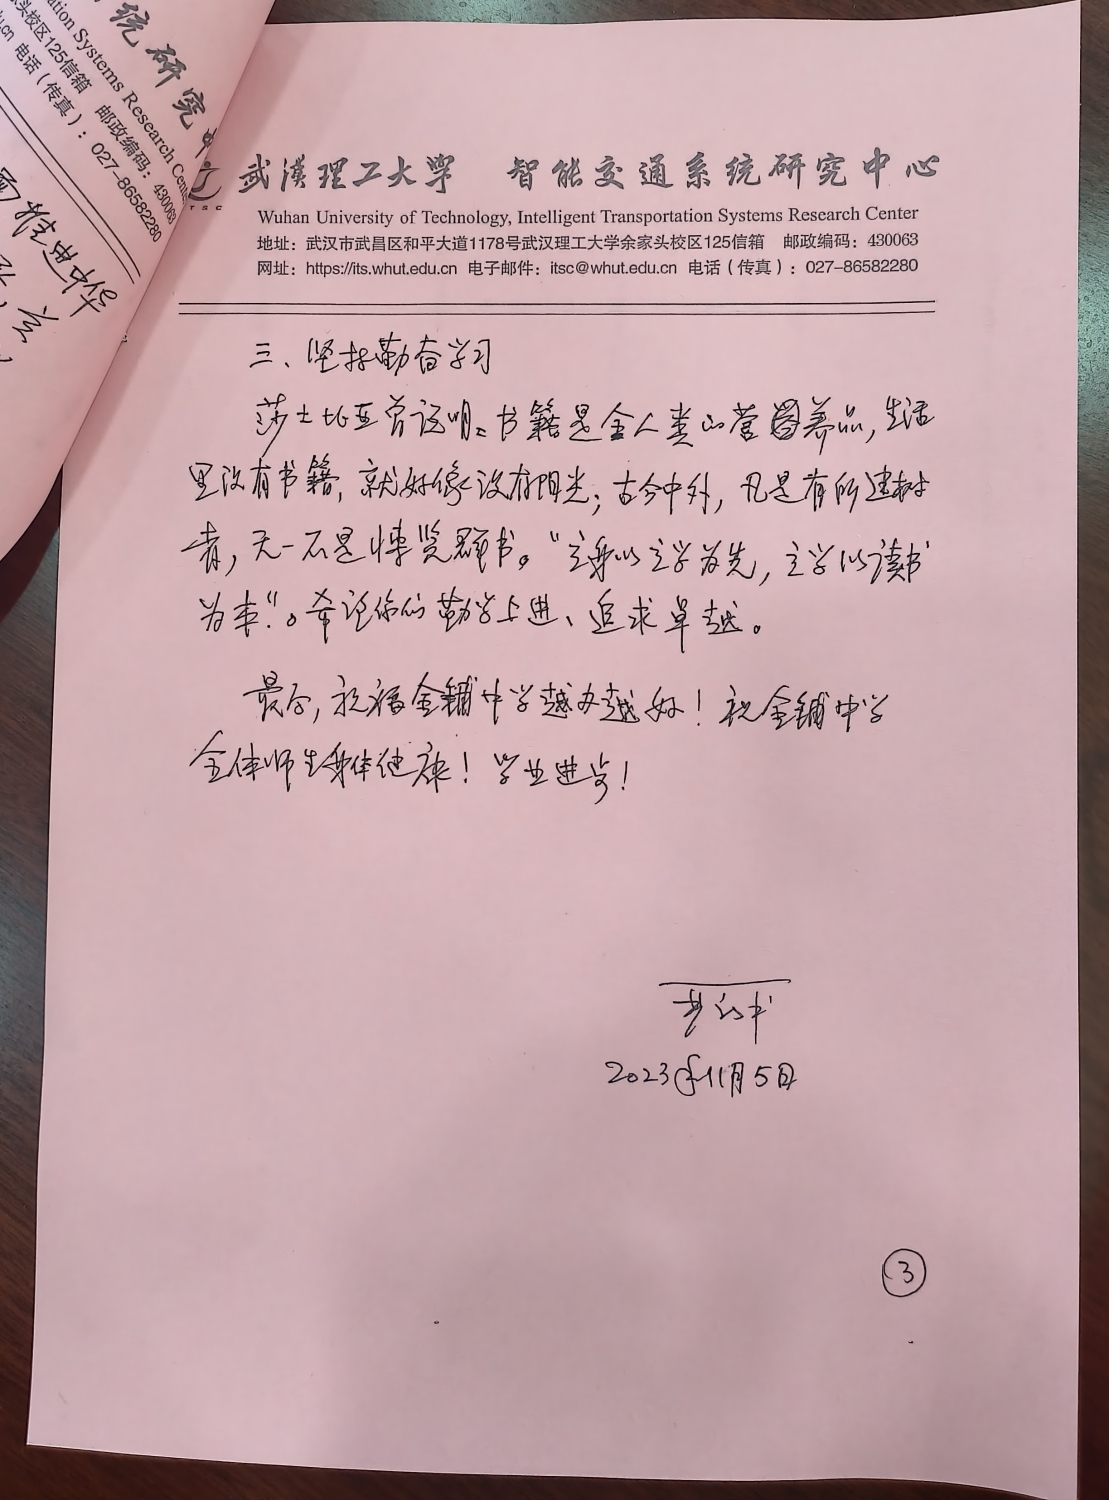 统研究中
ation Systems Research Cente
头校区125信箱 邮政编码：430063
.cn 电话（传真）：027-86582280
进中华
武漢理工大學 智能交通系统研究中心
Wuhan University of Technology, Intelligent Transportation Systems Research Center
地址：武汉市武昌区和平大道1178号武汉理工大学余家头校区125信箱 邮政编码：430063
网址：https://its.whut.edu.cn 电子邮件：itsc@whut.edu.cn 电话（传真）：027-86582280
三、坚持勤奋学习
莎士比亚曾说明：书籍是全人类的营养品，生活
里没有书籍，就好像没有阳光；古今中外，凡是有所建树
者，无一不是博览群书。“立身以立学为先，立学以读书
为本”。希望你们勤学上进、追求卓越。
最后，祝福金铺中学越办越好！祝金铺中学
全体师生身体健康！学业进步！
2023年11月5日
3